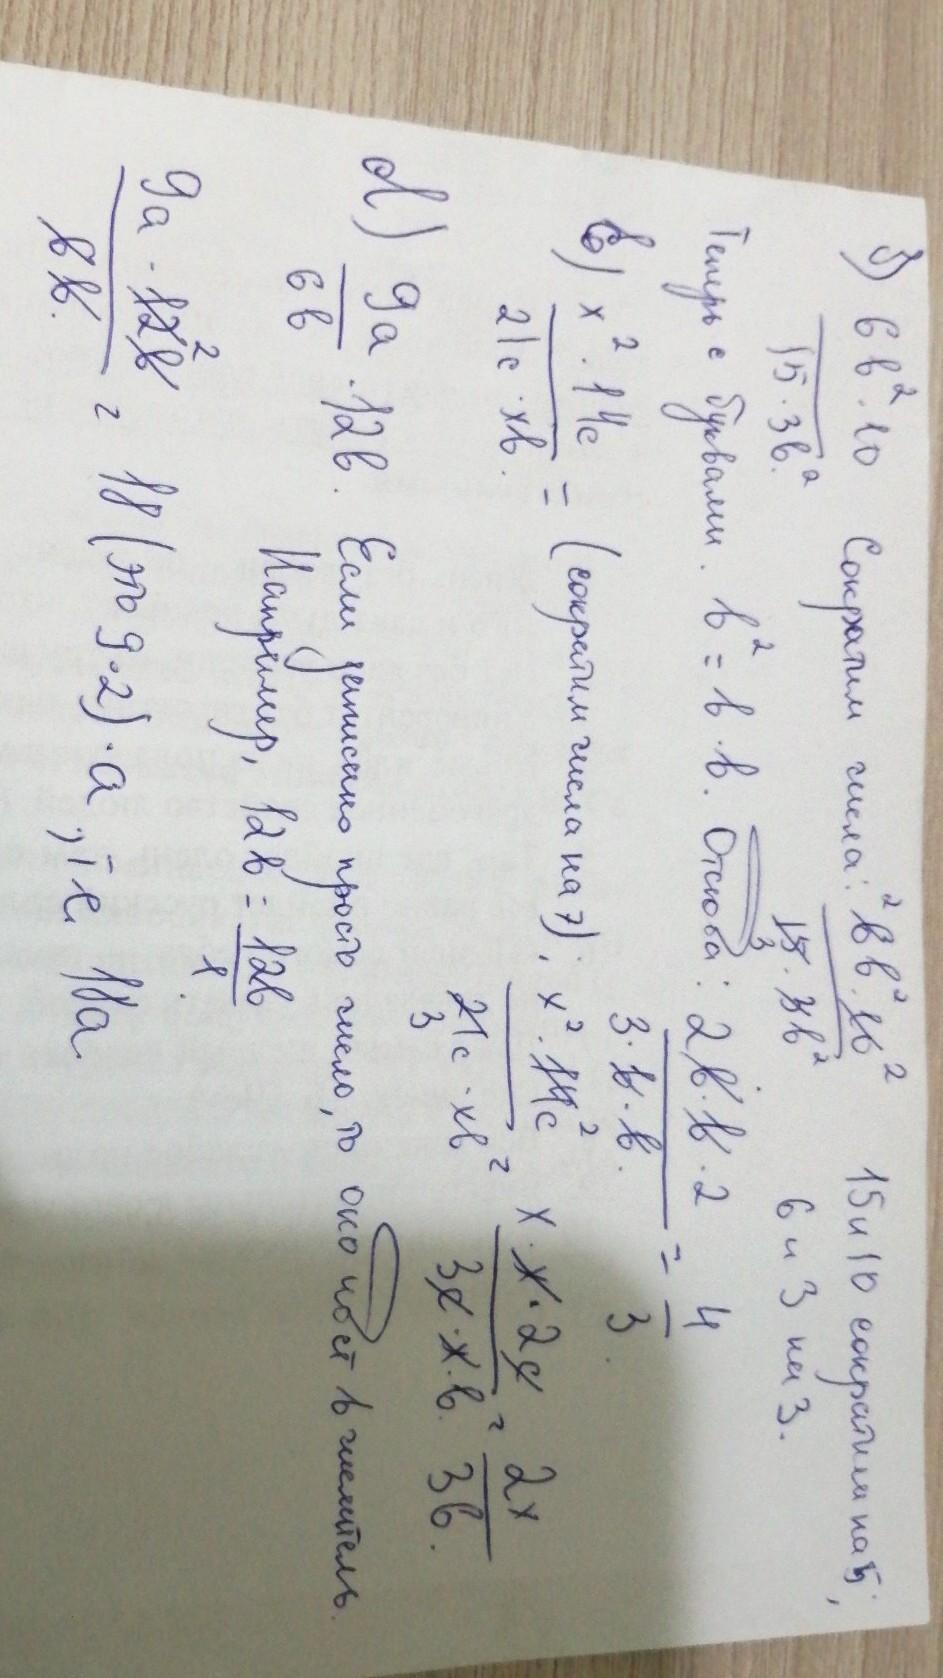 б) 6b² · 10 / 15 · 3b² Сократим числа: ²6b² · 10² / ₃15 · 3b² 15 и 10 сократим на 5,
6 и 3 на 3.
Теперь с буквами. b² = b · b. Отсюда: 2b · b · 2 / 3 · b · b. = 4 / 3.
в) x² · 14c / 21c · xb. = (сократим числа на 7): x² · 14c² / 21c₃ · xb = x · x · 2c / 3c · x · b. = 2x / 3b.
d) 9a / 6b · 12b. Если записано просто число, то оно идёт в числитель.
Например, 12b = 12b / 1.
9a · 12b² / 6b. = 18 (это 9·2) · a, т.е. 18a.